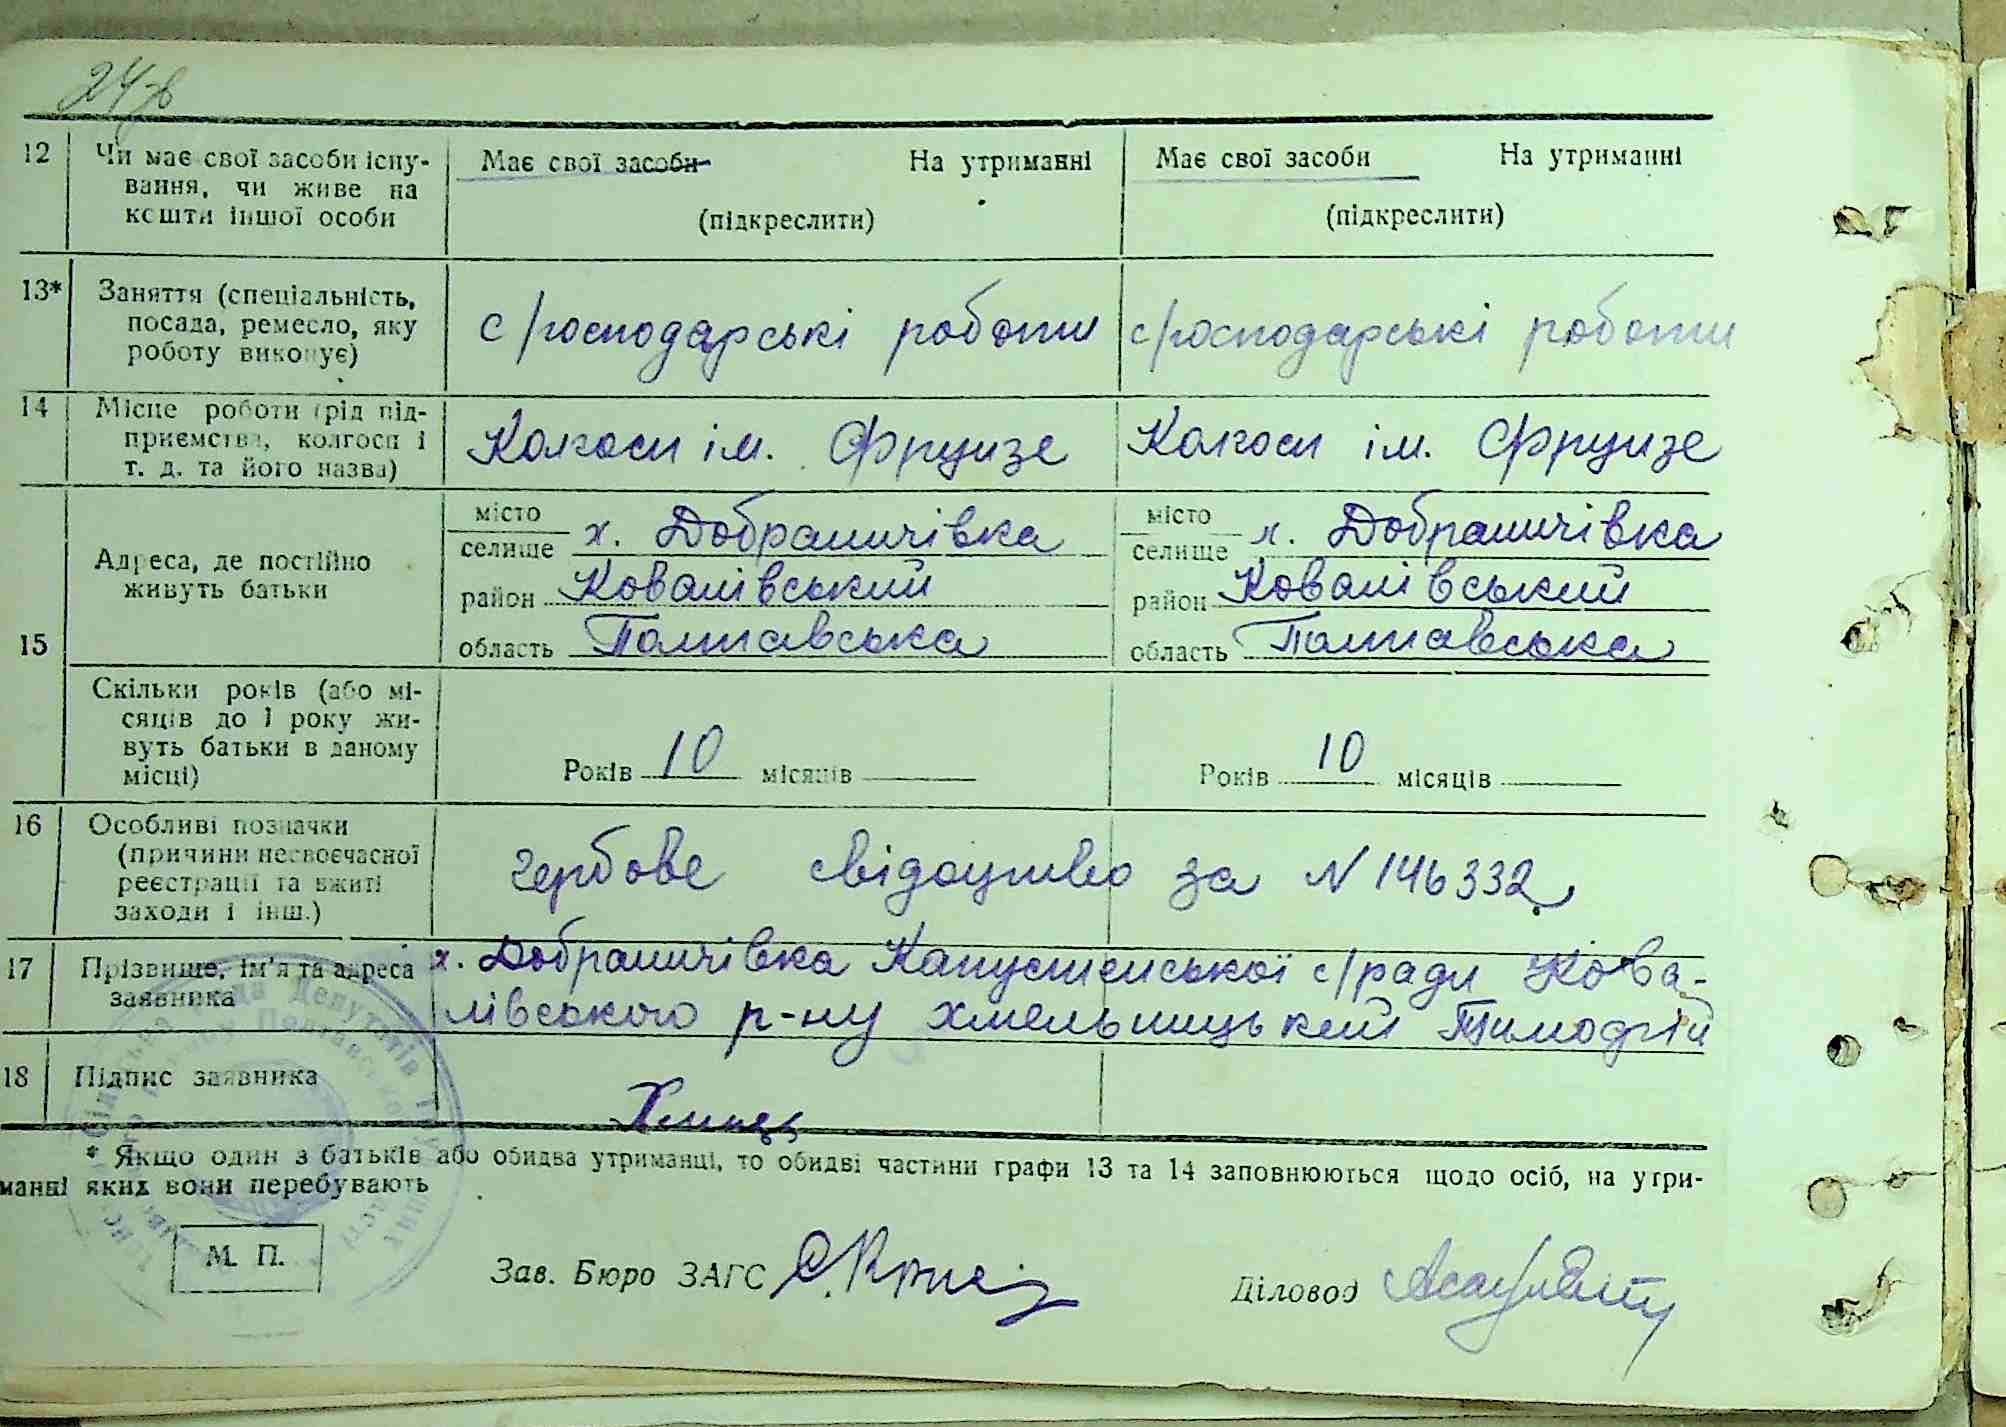 24-в
12 Чи має свої засоби існу-
вання, чи живе на
кошти іншої особи
Має свої засоби На утриманні
(підкреслити)
Має свої засоби На утриманні
(підкреслити)
13* Заняття (спеціальність,
посада, ремесло, яку
роботу виконує)
с/господарські роботи
с/господарські роботи
14 Місце роботи (рід під-
приємства, колгосп і
т. д. та його назва)
Колгосп ім. Фрунзе
Колгосп ім. Фрунзе
15
Адреса, де постійно
живуть батьки
місто
селище х. Добраничівка
район Ковалівський
область Полтавська
місто
селище х. Добраничівка
район Ковалівський
область Полтавська
Скільки років (або мі-
сяців до 1 року жи-
вуть батьки в даному
місці)
Років 10 місяців
Років 10 місяців
16 Особливі позначки
(причини несвоєчасної
реєстрації та вжиті
заходи і інш.)
гербове свідоцтво за N 146332
17 Прізвище, ім'я та адреса
заявника
х. Добраничівка Капустенської с/ради Кова-
лівського р-ну Хмельницький Тимофій
18 Підпис заявника
* Якщо один з батьків або обидва утриманці, то обидві частини графи 13 та 14 заповнюються щодо осіб, на утри-
манні яких вони перебувають
М. П.
Зав. Бюро ЗАГС
Діловод